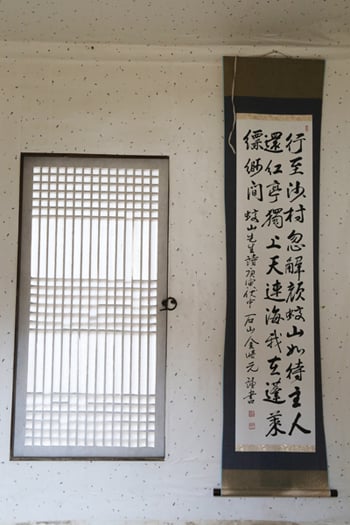 行至沙村忽解顔蛟山如待主人
還紅亭獨上天連海我在蓬萊
縹緲間 蛟山先生 伏中 石山 金 元 書